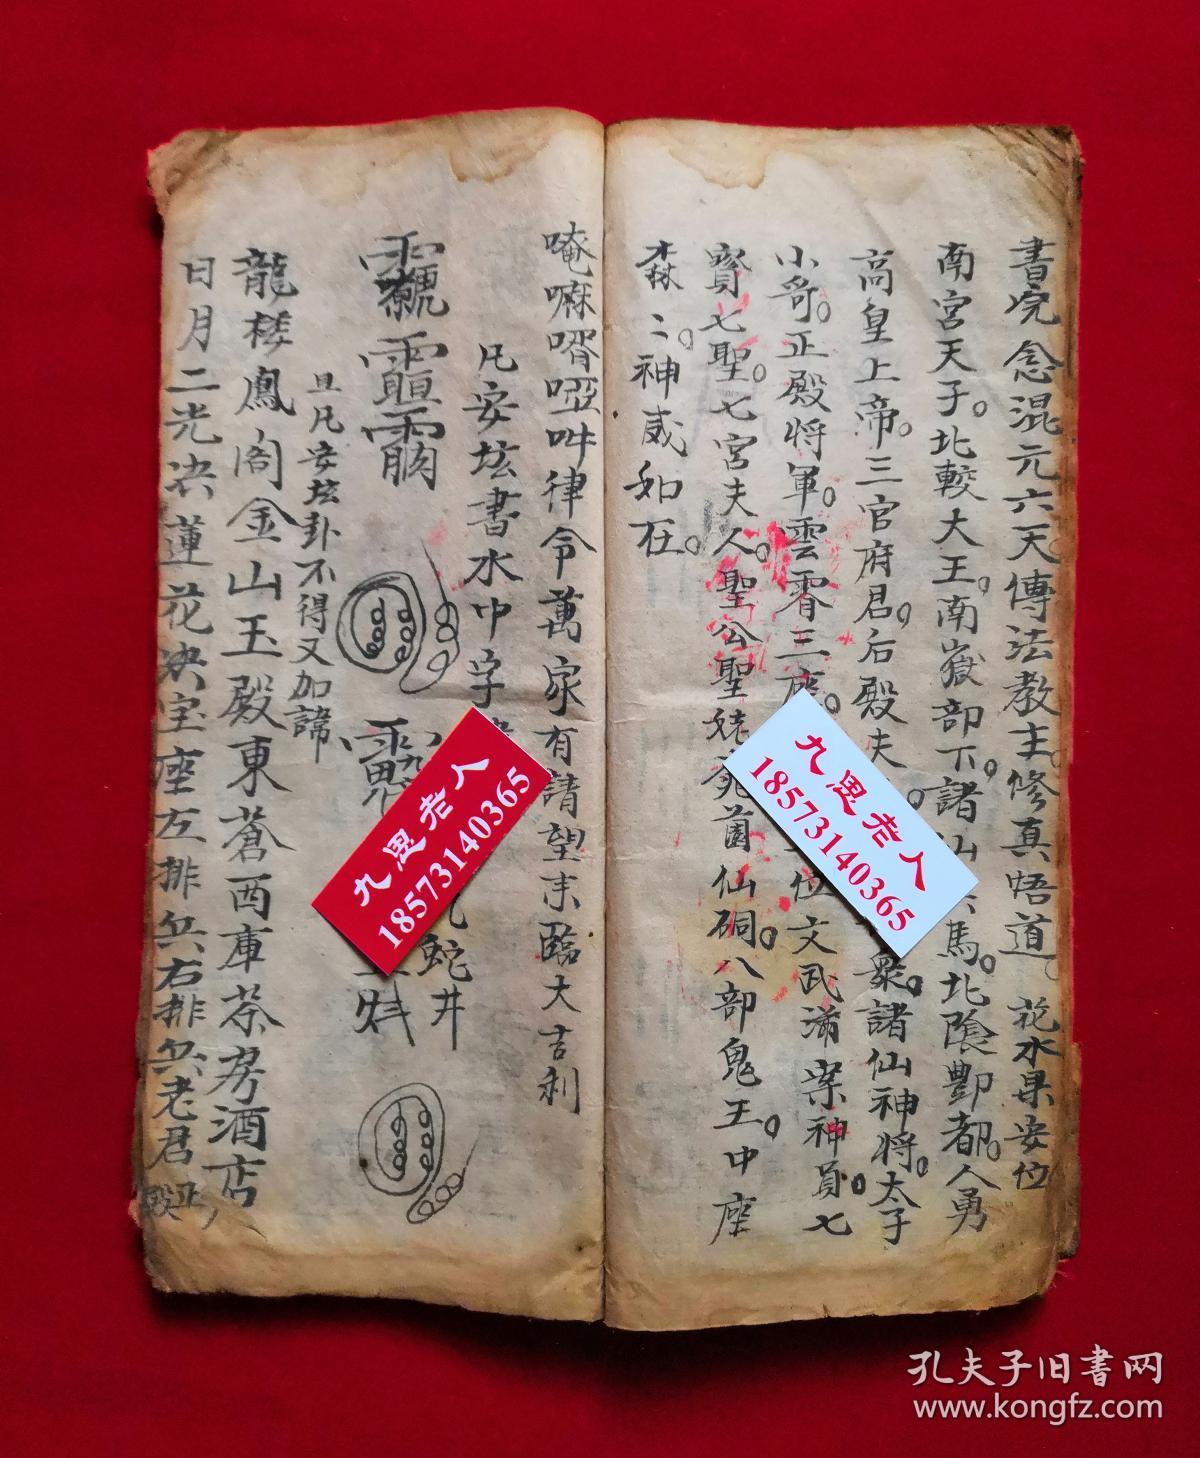 書完念混元六天傳法教主。修真悟道。花水果安位
南宮天子。北較大王。南嶽部下。諸山 馬。北陰酆都。人勇
高皇上帝。三官府君。后殿夫 衆。諸仙神將。太子
小哥。正殿将軍。雲霄三座。 位文武滿案神員。七
寳七聖。七宮夫人。聖公聖姥 仙硐。八部鬼王。中座
森〻。神威如在。
唵嘛 吽律令萬家有請望來臨大吉利
凡安坛書水中字 蛇井
旦凡安坛卦不得又加諱
龍楼鳳阁金山玉殿東蒼酉庫茶房酒店
日月二光决蓮花决宝座左排兵右排兵老君正殿
九思老人
18573140365
九思老人
18573140365
孔夫子旧书网
www.kongfz.com